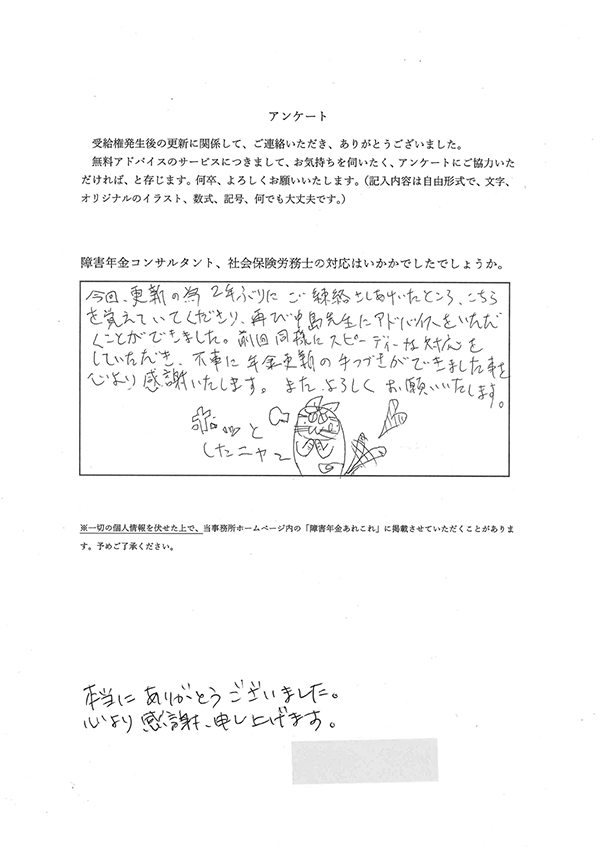 アンケート
受給権発生後の更新に関係して、ご連絡いただき、ありがとうございました。
無料アドバイスのサービスにつきまして、お気持ちを伺いたく、アンケートにご協力いた
だければ、と存じます。何卒、よろしくお願いいたします。（記入内容は自由形式で、文字、
オリジナルのイラスト、数式、記号、何でも大丈夫です。）
障害年金コンサルタント、社会保険労務士の対応はいかかでしたでしょうか。
今回、更新の為 2年ぶりに ご連絡さしあげいたところ、こちら
を覚えていてくださり、再び中島先生にアドバイスをいただ
くことができました。前回同様にスピーディーな対応を
していただき、不事に年金更新の手つづきができました事を
心より感謝いたします。また、よろしく お願いいたします。
ホッと
したニャ〜
※一切の個人情報を伏せた上で、当事務所ホームページ内の「障害年金あれこれ」に掲載させていただくことがありま
す。予めご了承ください。
本当に ありがとう ございました。
心より 感謝、申し上げます。